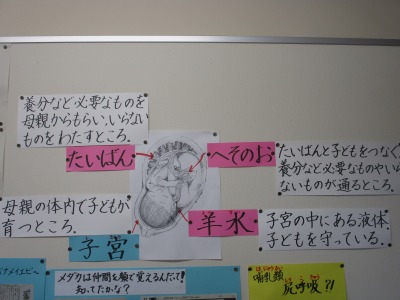 養分など必要なものを
母親からもらい、いらない
ものをわたすところ。
たいばん
へそのお
たいばんと子どもをつなぐ
要なものやいら
ないものが通るところ。
母親の体内で子どもが
育つところ。
子宮
羊水
子宮の中にある液体。
子どもを守っている。
メダカは仲間を顔で覚えるんだって!
知ってたかな?
哺乳類
尻呼吸?!